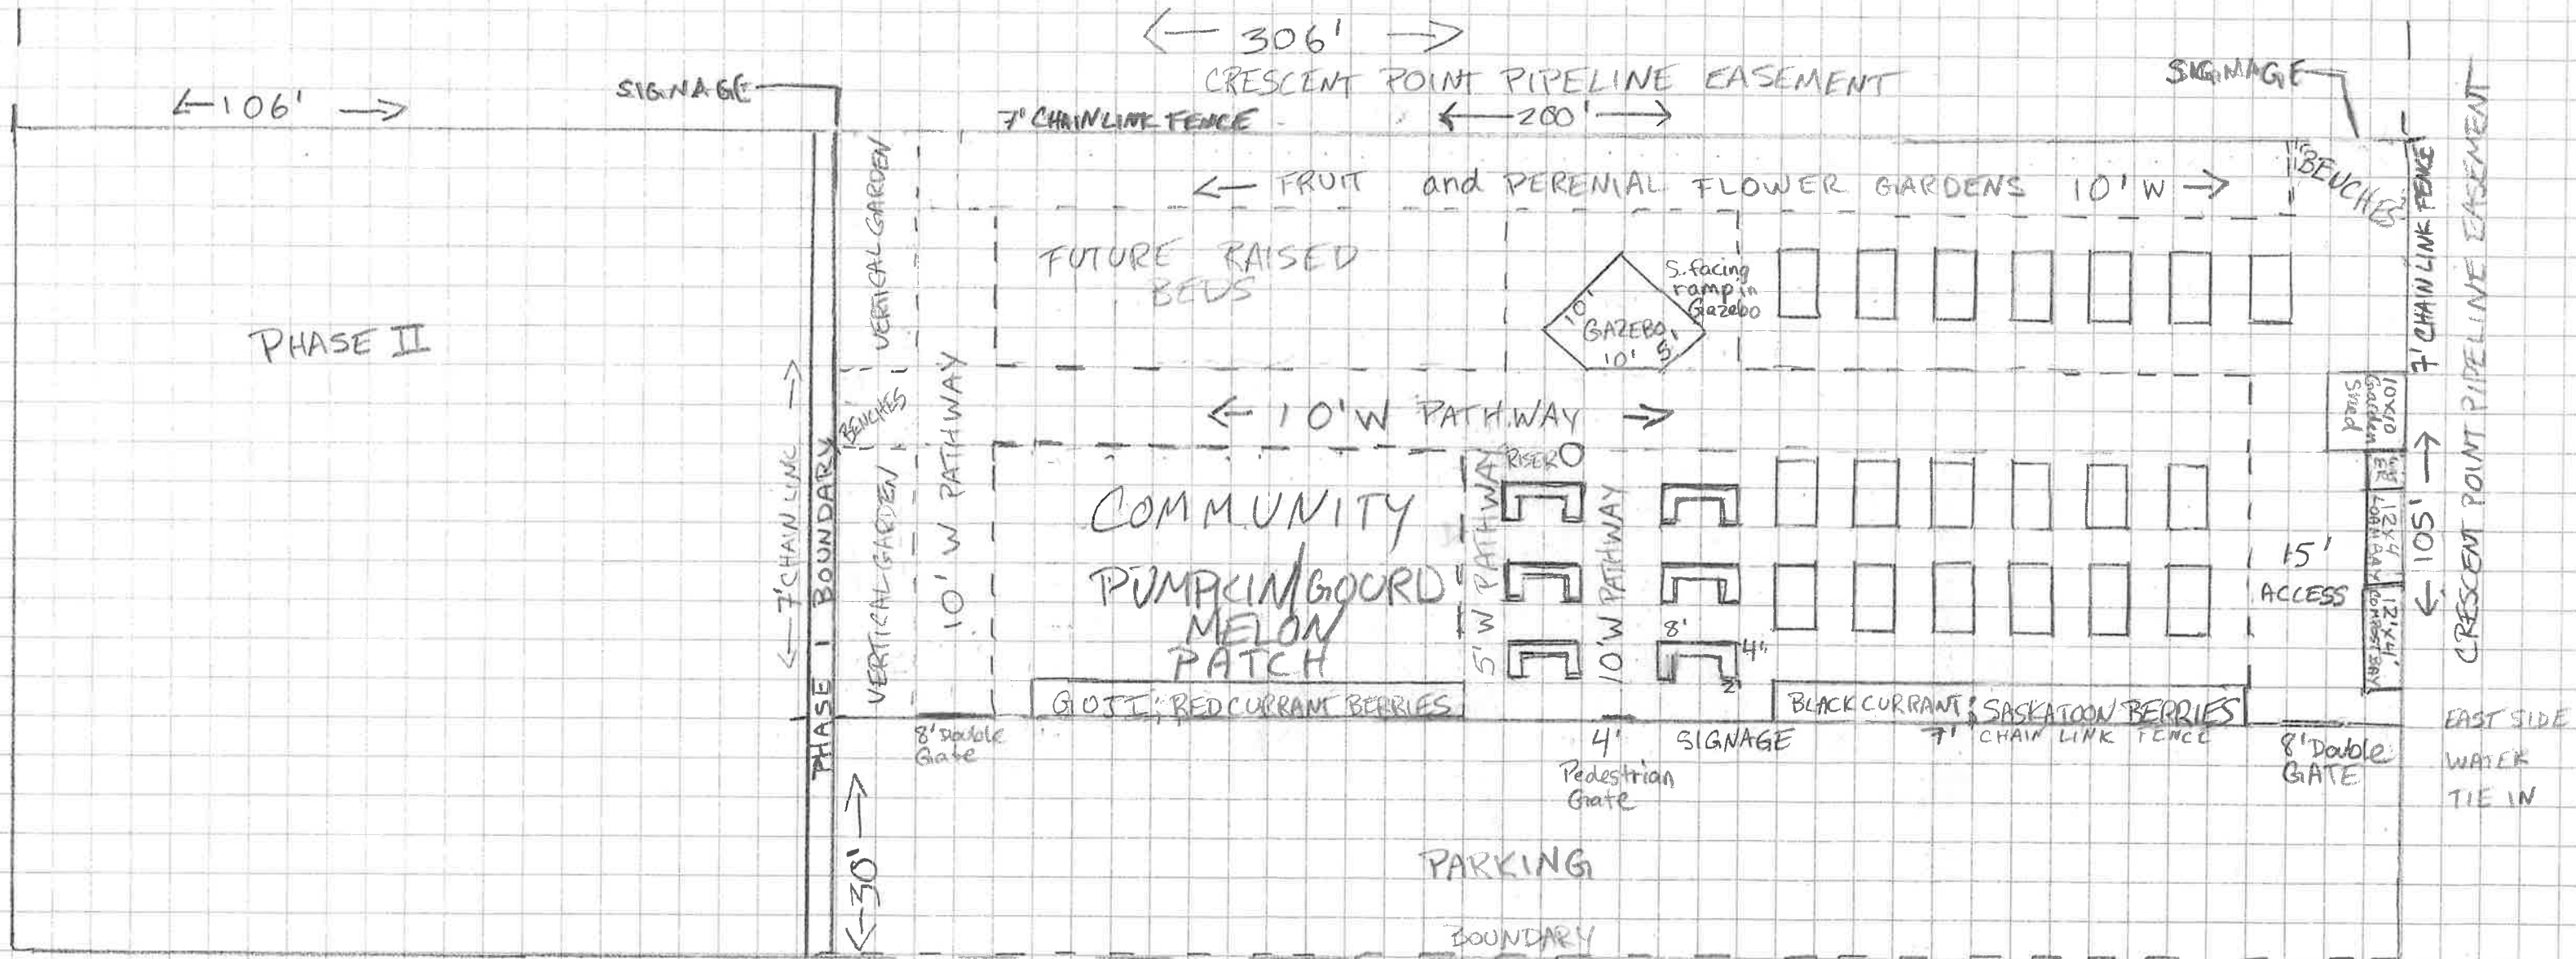 ← 306' →
CRESCENT POINT PIPELINE EASEMENT
SIGNAGE
SIGNAGE
← 106' →
7' CHAIN LINK FENCE
← 200' →
← FRUIT and PERENIAL FLOWER GARDENS 10' W →
BENCHES
7' CHAIN LINK FENCE
CRESCENT POINT PIPELINE EASEMENT
VERTICAL GARDEN
FUTURE RAISED
BEDS
S. facing
ramp in
Gazebo
10'
GAZEBO
10'
5'
PHASE II
BENCHES
10' W PATHWAY
← 10' W PATHWAY →
10x10
Garden
Shed
← 7' CHAIN LINK →
PHASE 1 BOUNDARY
VERTICAL GARDEN
COMMUNITY
PUMPKIN/GOURD
MELON
PATCH
RISER
5' W PATHWAY
10' W PATHWAY
8'
4'
2'
15'
ACCESS
12'x4'
LOAM BAY
12'x4'
COMPOST BAY
← 105' →
GOJI; RED CURRANT BERRIES
BLACK CURRANT; SASKATOON BERRIES
8' Double
Gate
4'
Pedestrian
Gate
SIGNAGE
7' CHAIN LINK FENCE
8' Double
GATE
EAST SIDE
WATER
TIE IN
← 30' →
PARKING
BOUNDARY